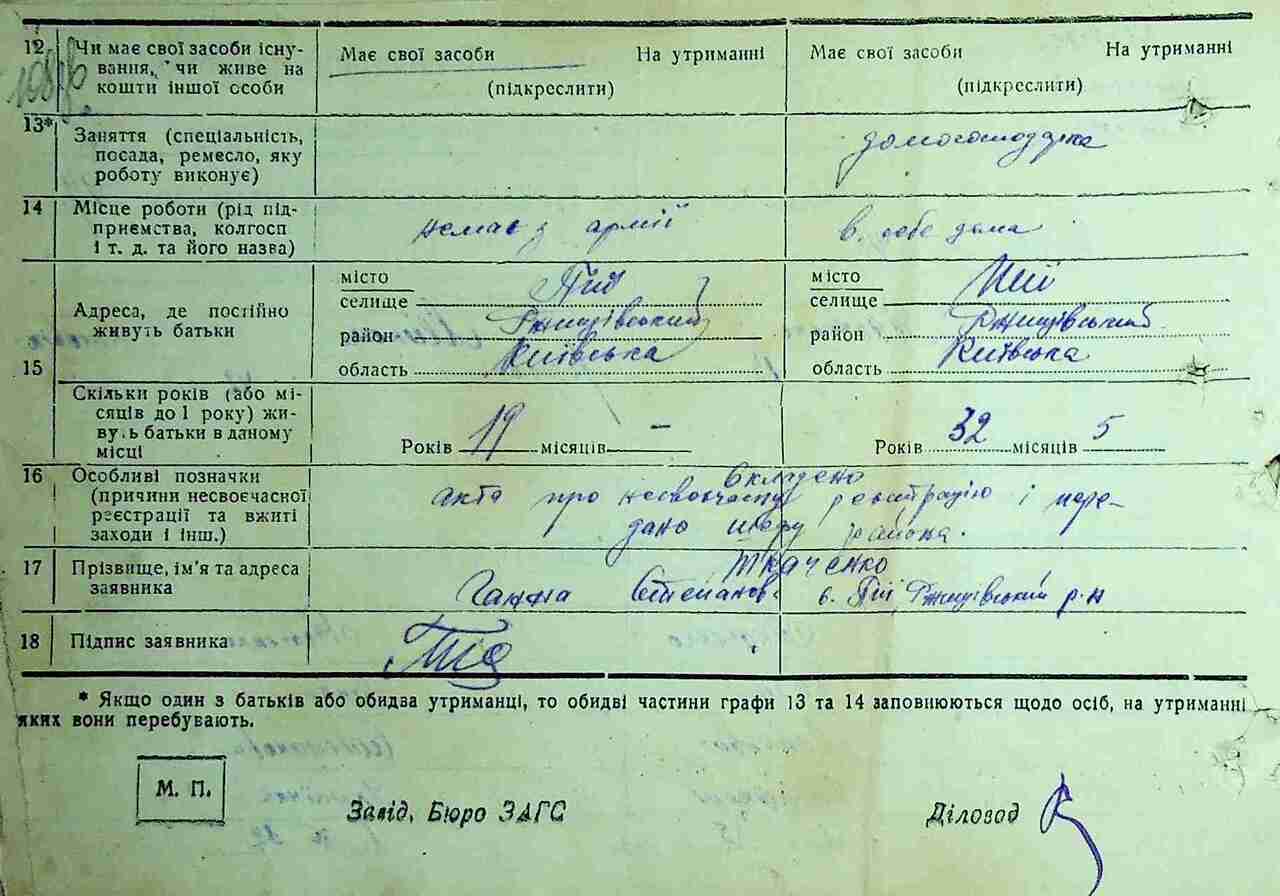 12. Чи має свої засоби існу- Має свої засоби На утриманні Має свої засоби На утриманні
вання, чи живе на
кошти іншої особи (підкреслити) (підкреслити)
13* Заняття (спеціальність,
посада, ремесло, яку домогосподарка
роботу виконує)
14 Місце роботи (рід під-
приємства, колгосп немає з армії в себе дома
і т. д. та його назва)
місто місто
селище Пії селище Пії
Адреса, де постійно
живуть батьки район Ржищівський район Ржищівський
15 область Київська область Київська
Скільки років (або мі-
сяців до 1 року) жи-
вуть батьки в даному Років 19 місяців — Років 32 місяців 5
місці
16 Особливі позначки Вкладено
(причини несвоєчасної акта про несвоєчасну реєстрацію і пере-
реєстрації та вжиті дано района.
заходи і інш.)
17 Прізвище, ім'я та адреса Ткаченко
заявника Ганна Степанов с. Пії Ржищівський р-н
18 Підпис заявника
* Якщо один з батьків або обидва утриманці, то обидві частини графи 13 та 14 заповнюються щодо осіб, на утриманні
яких вони перебувають.
М. П.
Завід. Бюро ЗАГС Діловод